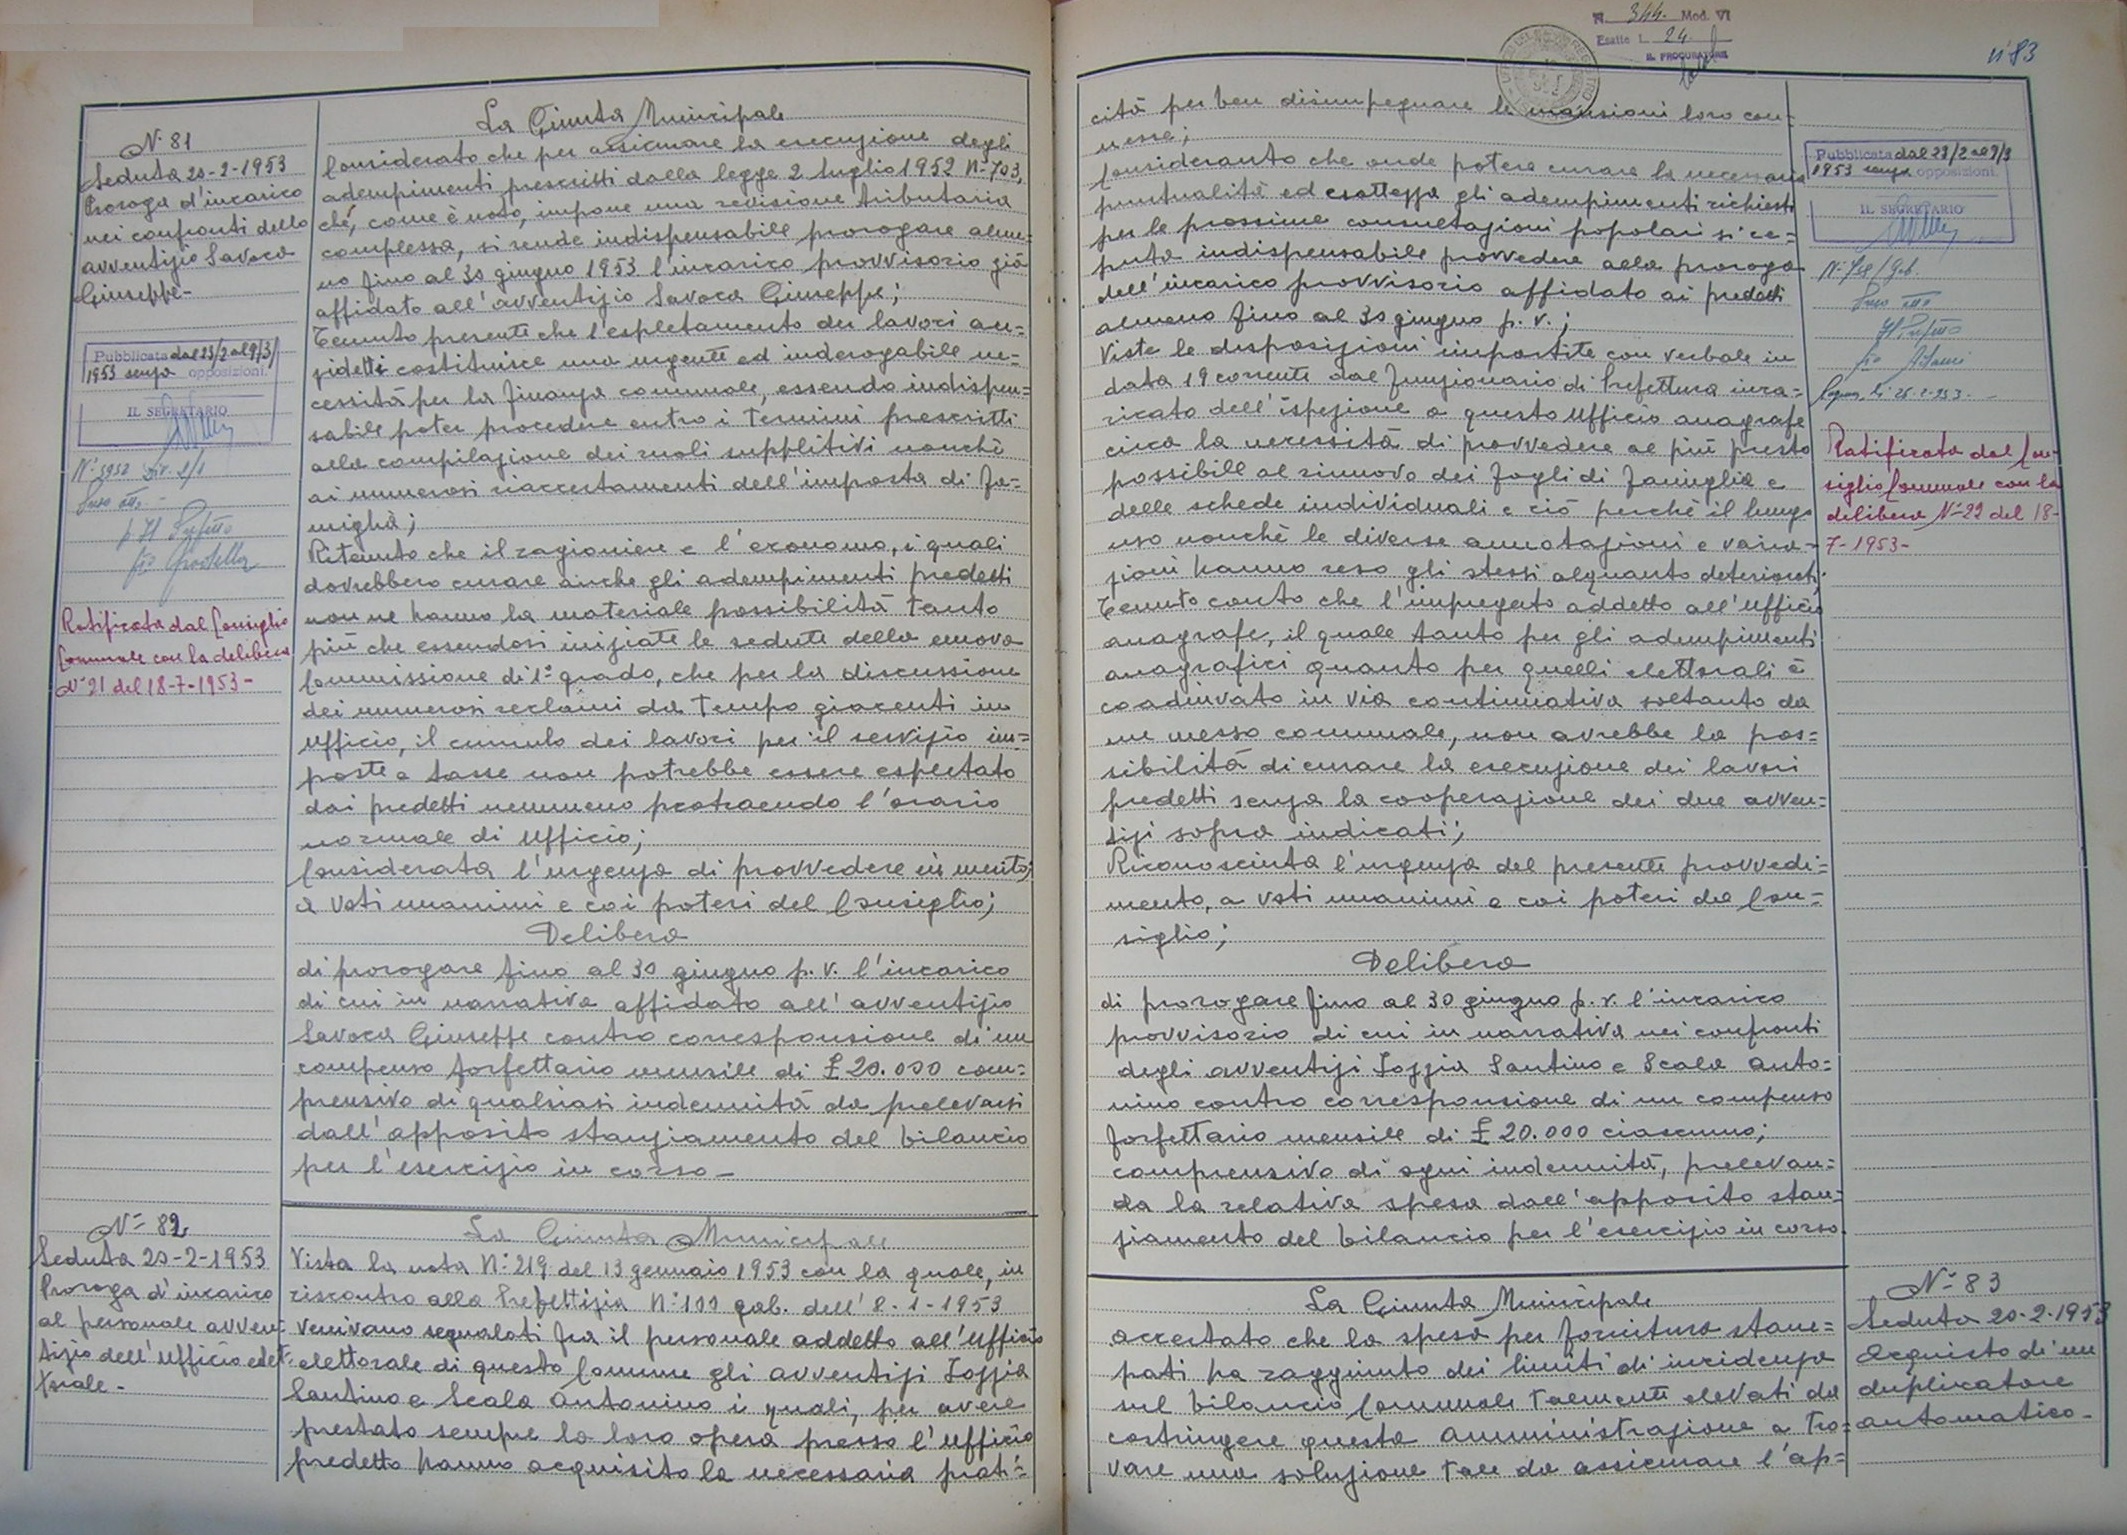 N. 81
Seduta 20-2-1953
Proroga d'incarico
nei confronti dello
avventizio Savoca
Giuseppe-
Pubblicata dal 23/2 al 9/3
1953 senza opposizioni.
IL SEGRETARIO
N. 3952 Div. 2/1
p. Il Prefetto
Ratificata dal Consiglio
Comunale con la delibera
N. 21 del 18-7-1953-
La Giunta Municipale
Considerato che per assicurare la esecuzione degli
adempimenti prescritti dalla legge 2 luglio 1952 N. 703,
che, come è noto, impone una revisione tributaria
complessa, si rende indispensabile prorogare alme=
no fino al 30 giugno 1953 l'incarico provvisorio già
affidato all'avventizio Savoca Giuseppe;
Tenuto presente che l'espletamento dei lavori an=
zidetti costituisce una urgente ed inderogabile ne=
cessità per la finanza comunale, essendo indispen=
sabile poter procedere entro i termini prescritti
alla compilazione dei ruoli suppletivi nonchè
ai numerosi riaccertamenti dell'imposta di fa=
miglia;
Ritenuto che il ragioniere e l'economo, i quali
dovrebbero curare anche gli adempimenti predetti
non ne hanno la materiale possibilità tanto
più che essendosi iniziate le sedute della nuova
Commissione di 1° grado, che per la discussione
dei numerosi reclami da tempo giacenti in
Ufficio, il cumulo dei lavori per il servizio im=
poste e tasse non potrebbe essere espletato
dai predetti nemmeno protraendo l'orario
normale di Ufficio;
Considerata l'urgenza di provvedere in merito;
a voti unanimi e coi poteri del Consiglio;
Delibera
di prorogare fino al 30 giugno p. v. l'incarico
di cui in narrativa affidato all'avventizio
Savoca Giuseppe contro corresponsione di un
compenso forfettario mensile di £ 20.000 com=
prensivo di qualsiasi indennità da prelevarsi
dall'apposito stanziamento del bilancio
per l'esercizio in corso-
N. 82
Seduta 20-2-1953
Proroga d'incarico
al personale avven=
tizio dell'Ufficio elet=
torale-
La Giunta Municipale
Vista la nota N. 219 del 13 gennaio 1953 con la quale, in
riscontro alla Prefettizia N. 100 gab. dell'8-1-1953
venivano segnalati fra il personale addetto all'Ufficio
elettorale di questo Comune gli avventizi Foggia
Santino e Scala Antonino i quali, per avere
prestato sempre la loro opera presso l'Ufficio
predetto hanno acquisito la necessaria prati=
N. 344. Mod. VI
Esatte L. 24.
IL PROCURATORE
n° 83
cità per ben disimpegnare le mansioni loro con=
nesse;
Considerato che onde potere curare la necessaria
puntualità ed esattezza gli adempimenti richiesti
per le prossime consultazioni popolari si re=
puta indispensabile provvedere alla proroga
dell'incarico provvisorio affidato ai predetti
almeno fino al 30 giugno p. v.;
Viste le disposizioni impartite con verbale in
data 19 corrente dal funzionario di Prefettura inca=
ricato dell'ispezione a questo Ufficio anagrafe
circa la necessità di provvedere al più presto
possibile al rinnovo dei fogli di famiglia e
delle schede individuali e ciò perchè il lungo
uso nonchè le diverse annotazioni e varia=
zioni hanno reso gli stessi alquanto deteriorati;
Tenuto conto che l'impiegato addetto all'Ufficio
anagrafe, il quale tanto per gli adempimenti
anagrafici quanto per quelli elettorali è
coadiuvato in via continuativa soltanto da
un messo comunale, non avrebbe la pos=
sibilità di curare la esecuzione dei lavori
predetti senza la cooperazione dei due avven=
tizi sopra indicati;
Riconosciuta l'urgenza del presente provvedi=
mento, a voti unanimi e coi poteri del Con=
siglio;
Delibera
di prorogare fino al 30 giugno p. v. l'incarico
provvisorio di cui in narrativa nei confronti
degli avventizi Foggia Santino e Scala Anto=
nino contro corresponsione di un compenso
forfettario mensile di £ 20.000 ciascuno;
comprensivo di ogni indennità, prelevan=
da la relativa spesa dall'apposito stan=
ziamento del bilancio per l'esercizio in corso.
La Giunta Municipale
accertato che la spesa per fornitura stam=
pati ha raggiunto dei limiti di incidenza
sul bilancio Comunale talmente elevati da
costringere questa Amministrazione a tro=
vare una soluzione tale da assicurare l'ap=
Pubblicata dal 23/2 al 9/3
1953 senza opposizioni.
IL SEGRETARIO
Il Prefetto
Ratificata dal Con=
siglio Comunale con la
delibera N. 22 del 18-
7-1953-
N. 83
Seduta 20-2-1953
Acquisto di un
duplicatore
automatico-